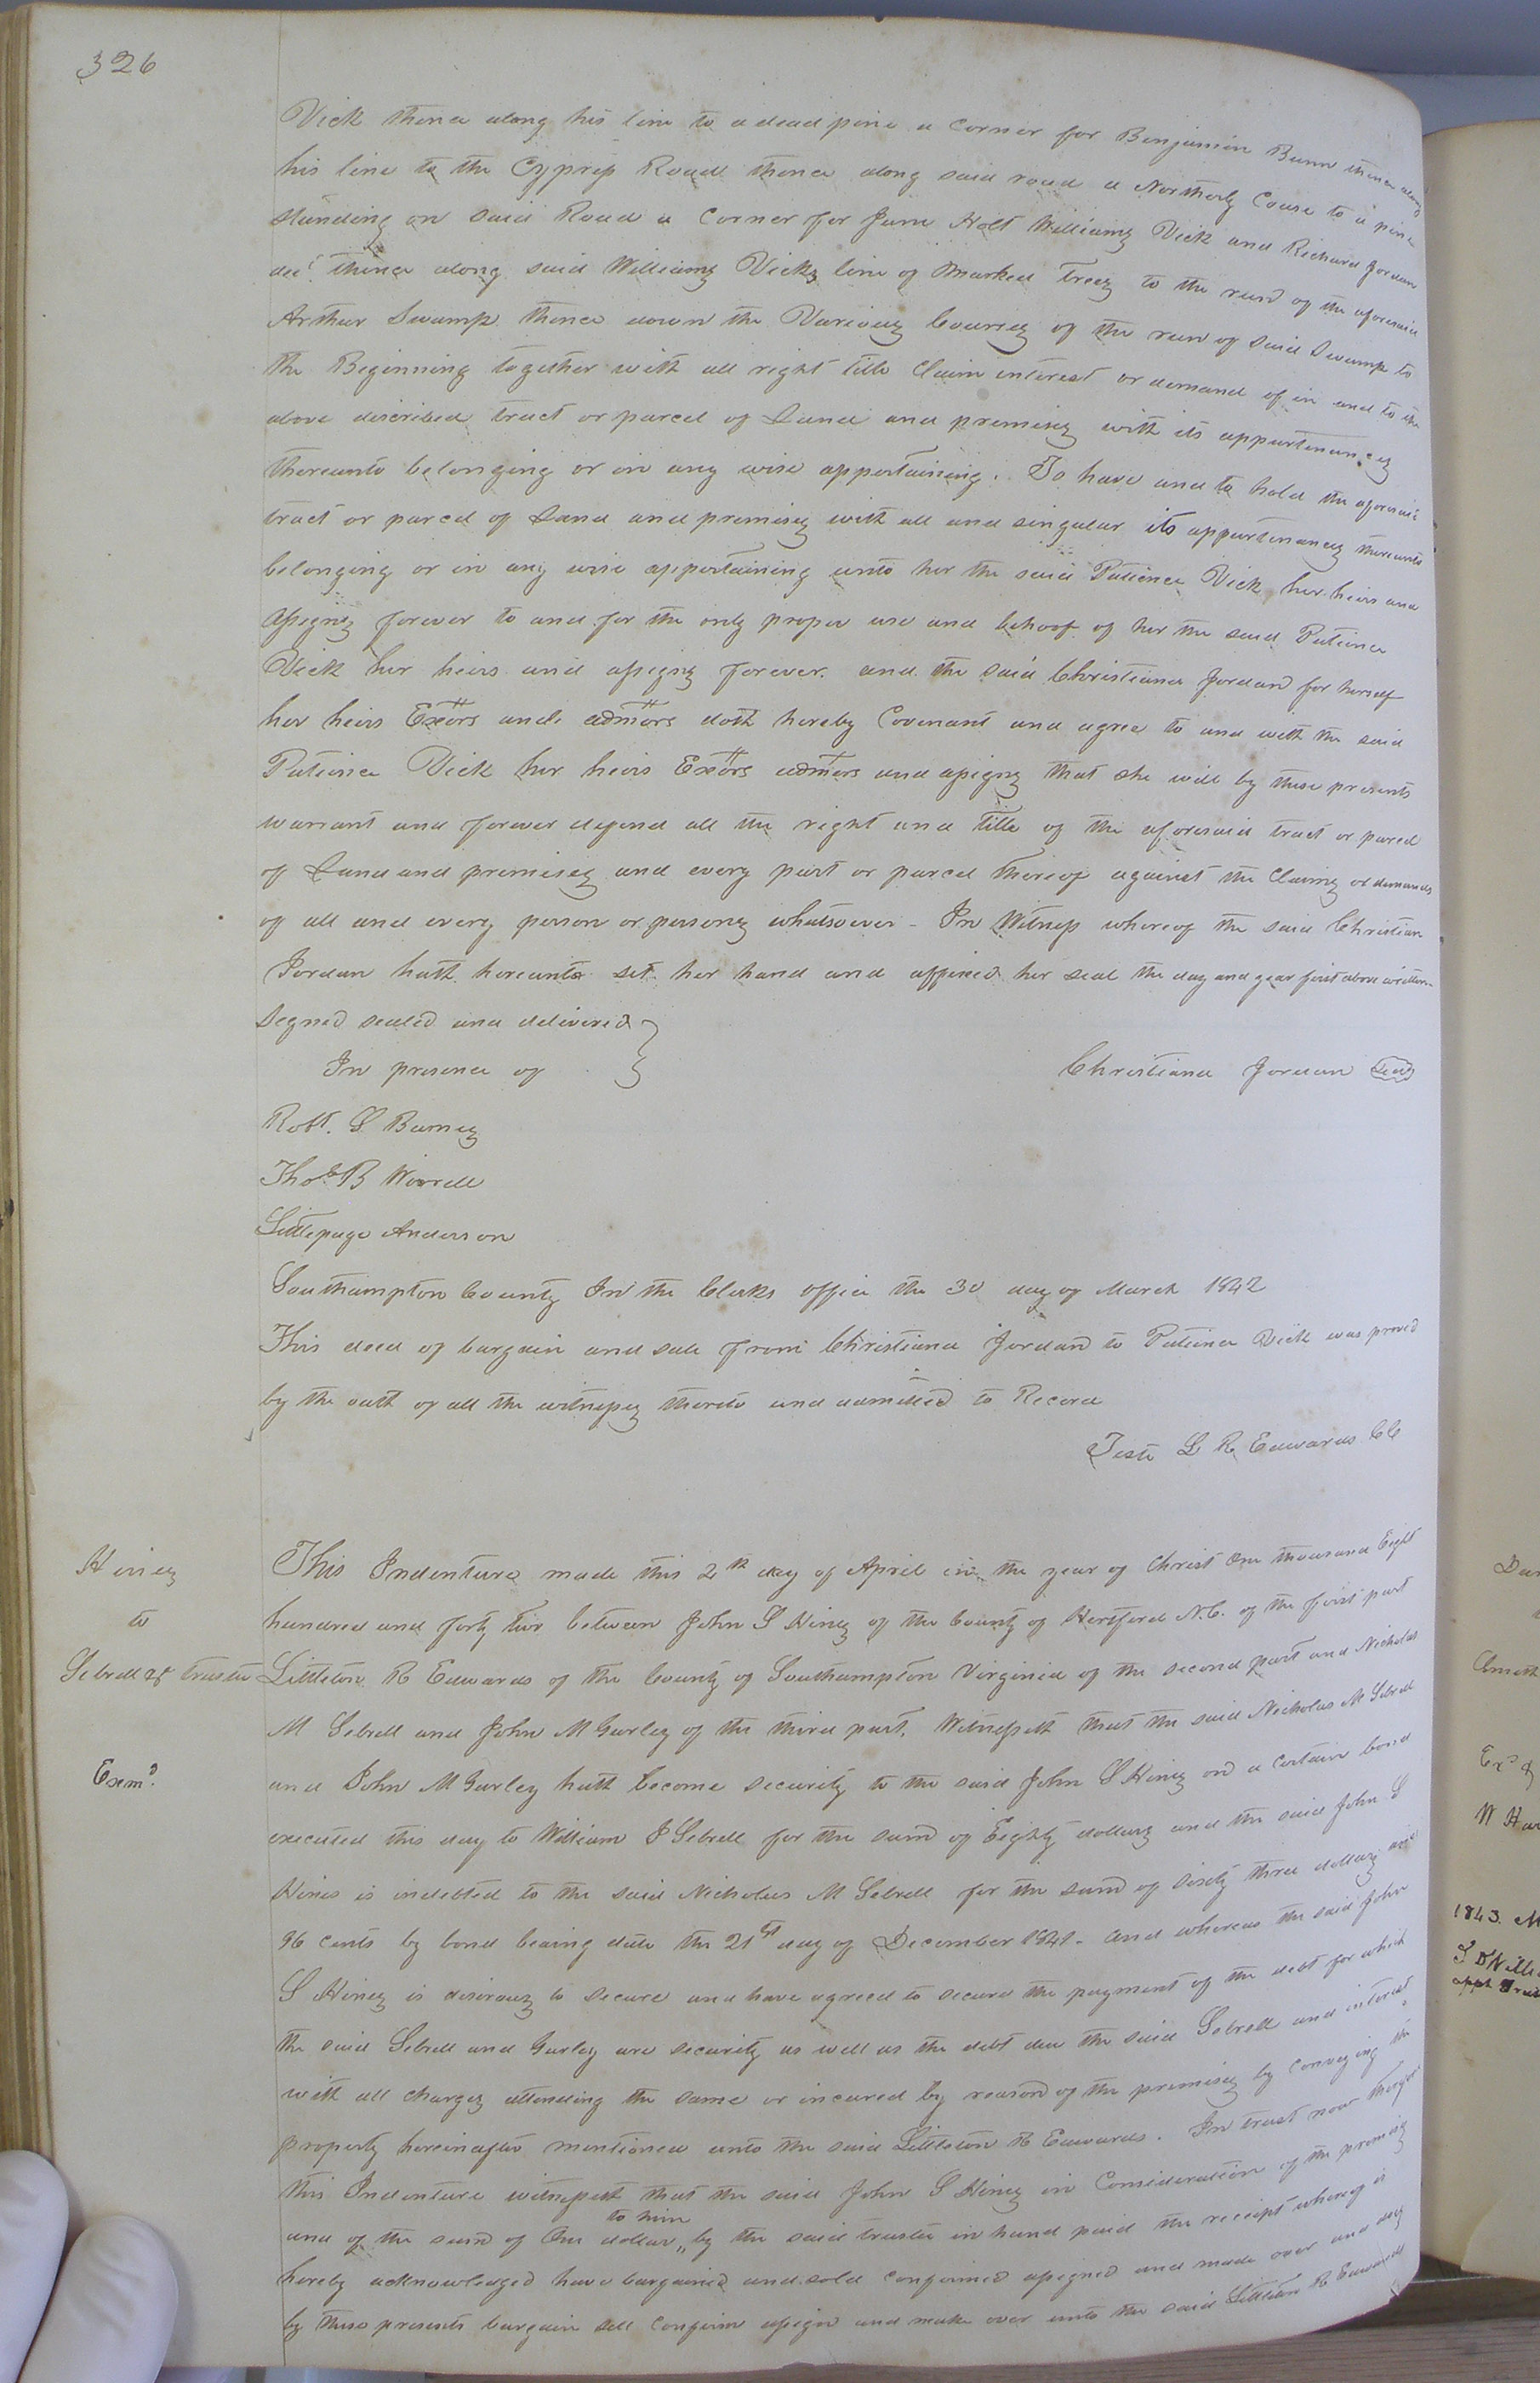 326
Vick thence along his line to a dead pine a Corner for Benjamin Bunn thence along
his line to the Cypress Road thence along said road a Northerly Course to a pine
standing on said Road a Corner for Jane Holt Williams Vick and Richard Jordan
decd thence along said Williams Vicks line of Marked trees to the run of the aforesaid
Arthur Swamp thence down the Various Courses of the run of said Swamp to
the Beginning together with all right title Claim interest or demand of in and to the
above discribed tract or parcel of Land and premises with its appurtenances
thereunto belonging or in any wise appertaining. To have and to hold the aforesaid
tract or parcel of Land and premises with all and singular its appurtenances thereunto
belonging or in any wise appertaining unto her the said Patience Vick her heirs and
assigns forever to and for the only proper use and behoof of her the said Patience
Vick her heirs and assigns forever. and the said Christiana Jordan for herself
her heirs Exors and admors doth hereby Covenant and agree to and with the said
Patience Vick her heirs Exors admors and assigns that she will by these presents
warrant and forever defend all the right and title of the aforesaid tract or parcel
of Land and premises and every part or parcel thereof against the Claims or demands
of all and every person or persons whatsoever - In Witness whereof the said Christian
Jordan hath hereunto set her hand and affixed her seal the day and year first above written
Signed sealed and delivered }
In presence of }
Christiana Jordan Seal
Robt. S Barnes
Thos B Worrell
Littlepage Anderson
Southampton County In the Clerks office the 30 day of March 1842
This deed of bargain and sale from Christiana Jordan to Patience Vick was proved
by the oath of all the witnesses thereto and admitted to Record
Teste L R Edwards CC
Hines
to
Sebrell &c trustee
Exmd.
This Indenture made this 2th day of April in the year of Christ One thousand Eight
hundred and forty two between John S Hines of the County of Hertford N.C. of the first part
Littleton R Edwards of the County of Southampton Virginia of the second part and Nicholas
M Sebrell and John M Gurley of the third part, Witnesseth that the said Nicholas M Sebrell
and John M Gurley hath become security to the said John S Hines on a certain bond
executed this day to William J Sebrell for the sum of Eighty dollars and the said John S
Hines is indebted to the said Nicholas M Sebrell for the sum of sixty three dollars and
96 cents by bond bearing date the 21st day of December 1841 - and whereas the said John
S Hines is desirous to secure and have agreed to secure the payment of the debt for which
the said Sebrell and Gurley are security as well as the debt due the said Sebrell and interest
with all charges attending the same or incured by reason of the premises by conveying the
property hereinafter mentioned unto the said Littleton R Edwards. In trust now therefore
this Indenture witnesseth that the said John S Hines in Consideration of the premises
and of the sum of One dollar to him by the said trustee in hand paid the receipt whereof is
hereby acknowledged have bargained and sold confirmed assigned and made over and doth
by these presents bargain sell confirm assign and make over unto the said Littleton R Edwards
1843.